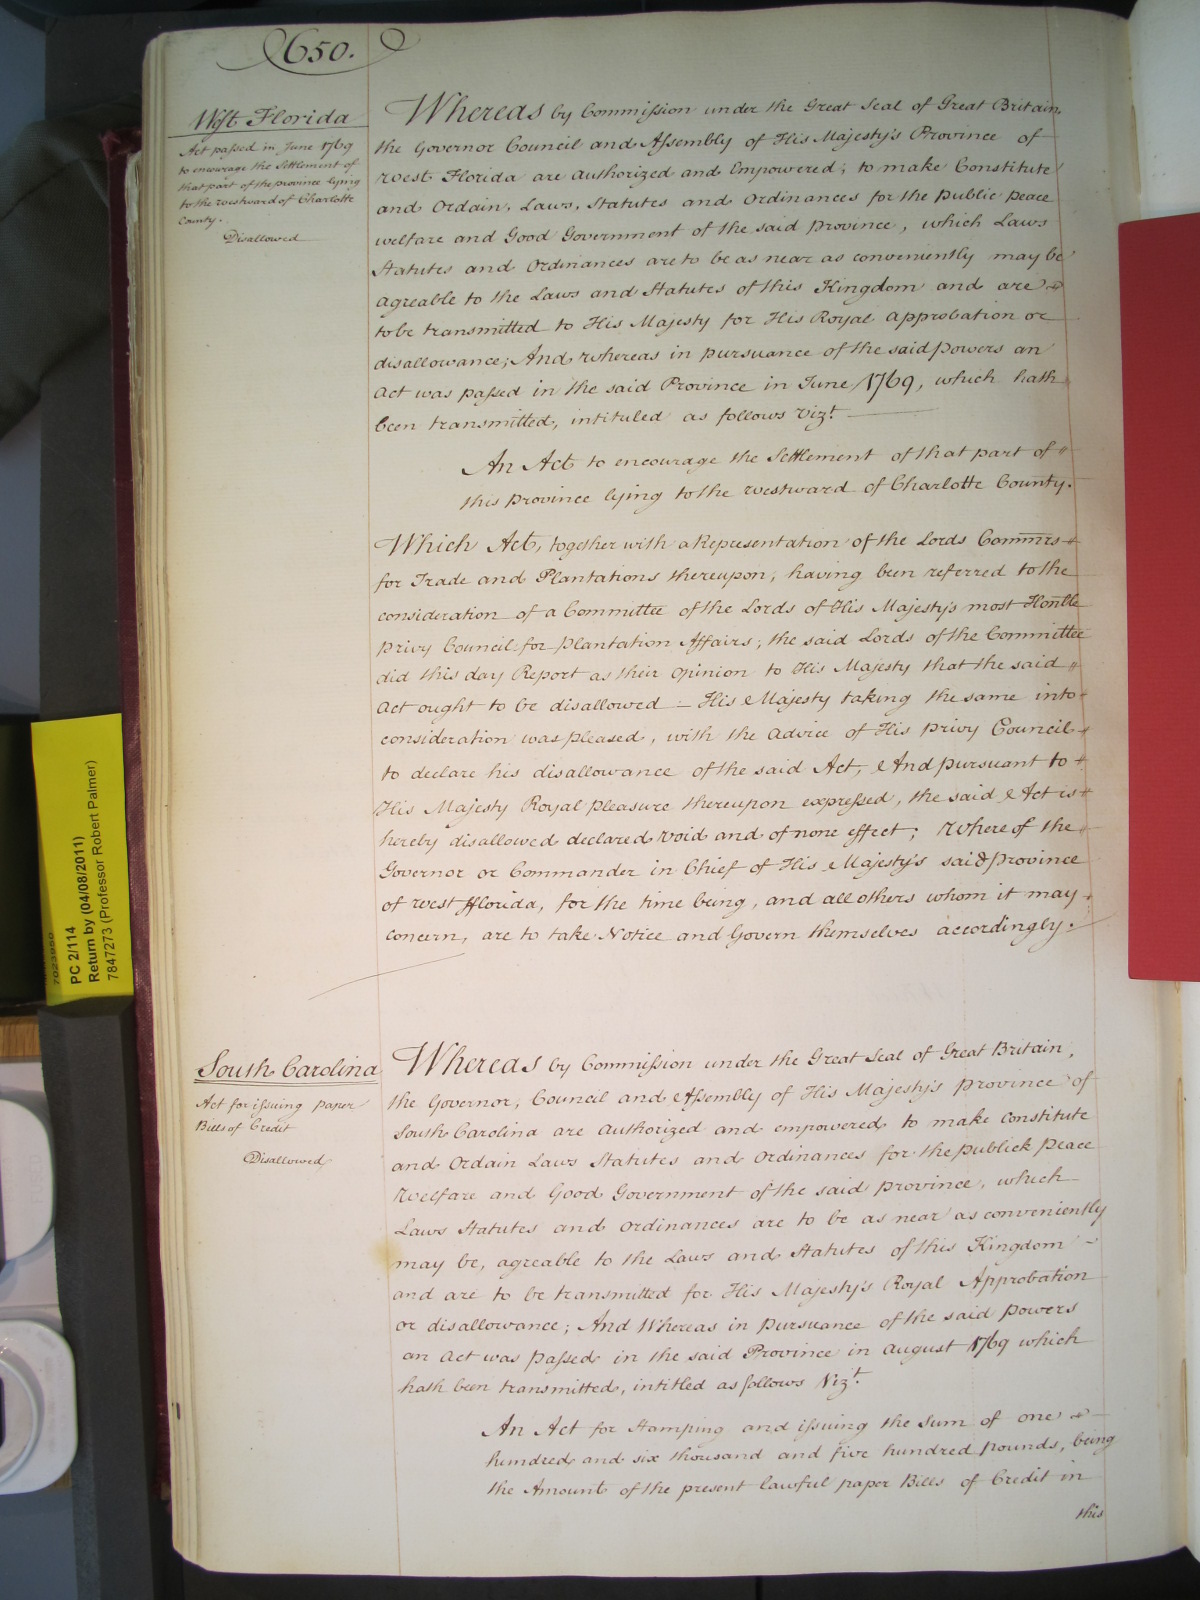 650.
West Florida
Act passed in June 1769
to encourage the Settlement of
that part of the province lying
to the westward of Charlotte
County.
Disallowed
Whereas by Commission under the Great Seal of Great Britain,
the Governor Council and Assembly of His Majesty's Province of
West Florida are authorized and Empowered, to make Constitute
and Ordain, Laws, Statutes and Ordinances for the Public peace
welfare and Good Government of the said province, which Laws
Statutes and Ordinances are to be as near as conveniently may be
agreable to the Laws and Statutes of this Kingdom and are
to be transmitted to His Majesty for His Royal approbation or
disallowance; And whereas in pursuance of the said powers an
Act was passed in the said Province in June 1769, which hath
been transmitted, intituled as follows Vizt.
An Act to encourage the Settlement of that part of
this province lying to the westward of Charlotte County.
Which Act, together with a Representation of the Lords Commrs
for Trade and Plantations thereupon, having been referred to the
consideration of a Committee of the Lords of His Majesty's most Honble
privy Council for plantation Affairs, the said Lords of the Committee
did this day Report as their opinion to His Majesty that the said
Act ought to be disallowed – His Majesty taking the same into
consideration was pleased, with the advice of His privy Council
to declare his disallowance of the said Act, And pursuant to
His Majesty Royal pleasure thereupon expressed, the said Act is
hereby disallowed declared void and of none effect; Whereof the
Governor or Commander in Chief of His Majesty's said province
of West Florida, for the time being, and all others whom it may
concern, are to take Notice and Govern themselves accordingly.
PC 2/114
Return by (04/08/2011)
7847273 (Professor Robert Palmer)
South Carolina
Act for issuing paper
Bills of Credit
Disallowed
Whereas by Commission under the Great Seal of Great Britain,
the Governor, Council and Assembly of His Majesty's province of
South Carolina are authorized and empowered to make constitute
and Ordain Laws Statutes and Ordinances for the publick peace
Welfare and Good Government of the said province, which
Laws Statutes and Ordinances are to be as near as conveniently
may be, agreable to the Laws and Statutes of this Kingdom
and are to be transmitted for His Majesty's Royal Approbation
or disallowance; And Whereas in pursuance of the said powers
an Act was passed in the said Province in August 1769 which
hath been transmitted, intitled as follows Vizt.
An Act for stamping and issuing the sum of one
hundred and six thousand and five hundred pounds, being
the Amount of the present lawful paper Bills of Credit in
this